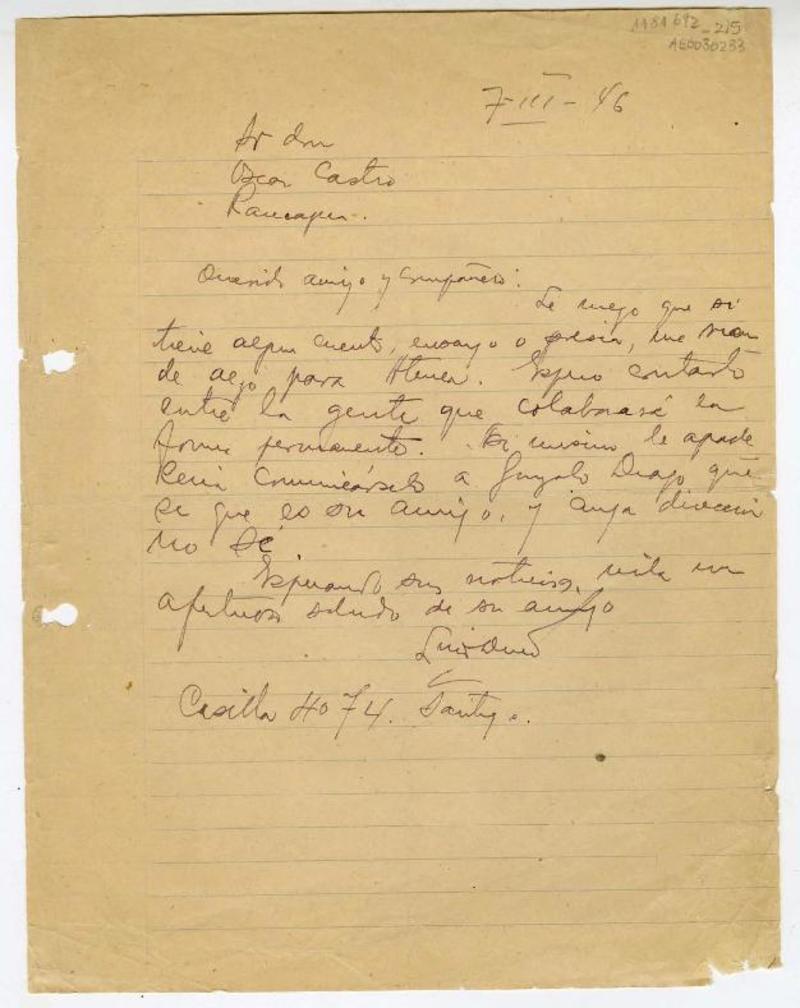 MSA 692_215
AE0030233
7-III-46
Sr don
Oscar Castro
Rancagua.
Querido amigo y compañero:
Le ruego que si
tiene algún cuento, ensayo o poesía, me man
de algo para Atenea. Espero contarlo
entre la gente que colaborará en
forma permanente. Así mismo le agrade
cería comunicárselo a Gonzalo Drago que
sé que es su amigo, y cuya dirección
no sé.
Esperando sus noticias, un
afectuoso saludo de su amigo
Luis
Casilla 4074. Santiago.